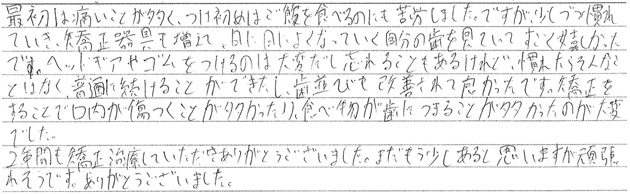 最初は痛いことが多く、つけ初めはご飯を食べるのにも苦労しました。ですが、少しづつ慣れ
ていき、矯正器具も増えて、日に日によくなっていく自分の歯を見ていてすごく嬉しかった
です。ヘッドギアやゴムをつけるのは大変だし忘れることもあるけれど、慣れたらそんなこ
とはなく、普通に続けることができたし、歯並びも改善されて良かったです。矯正を
することで口内が傷つくことが多かったり、食べ物が歯につまることが多かったのが大変
でした。
2年間も矯正治療していただきありがとうございました。まだもう少しあると思いますが頑張
れそうです。ありがとうございました。